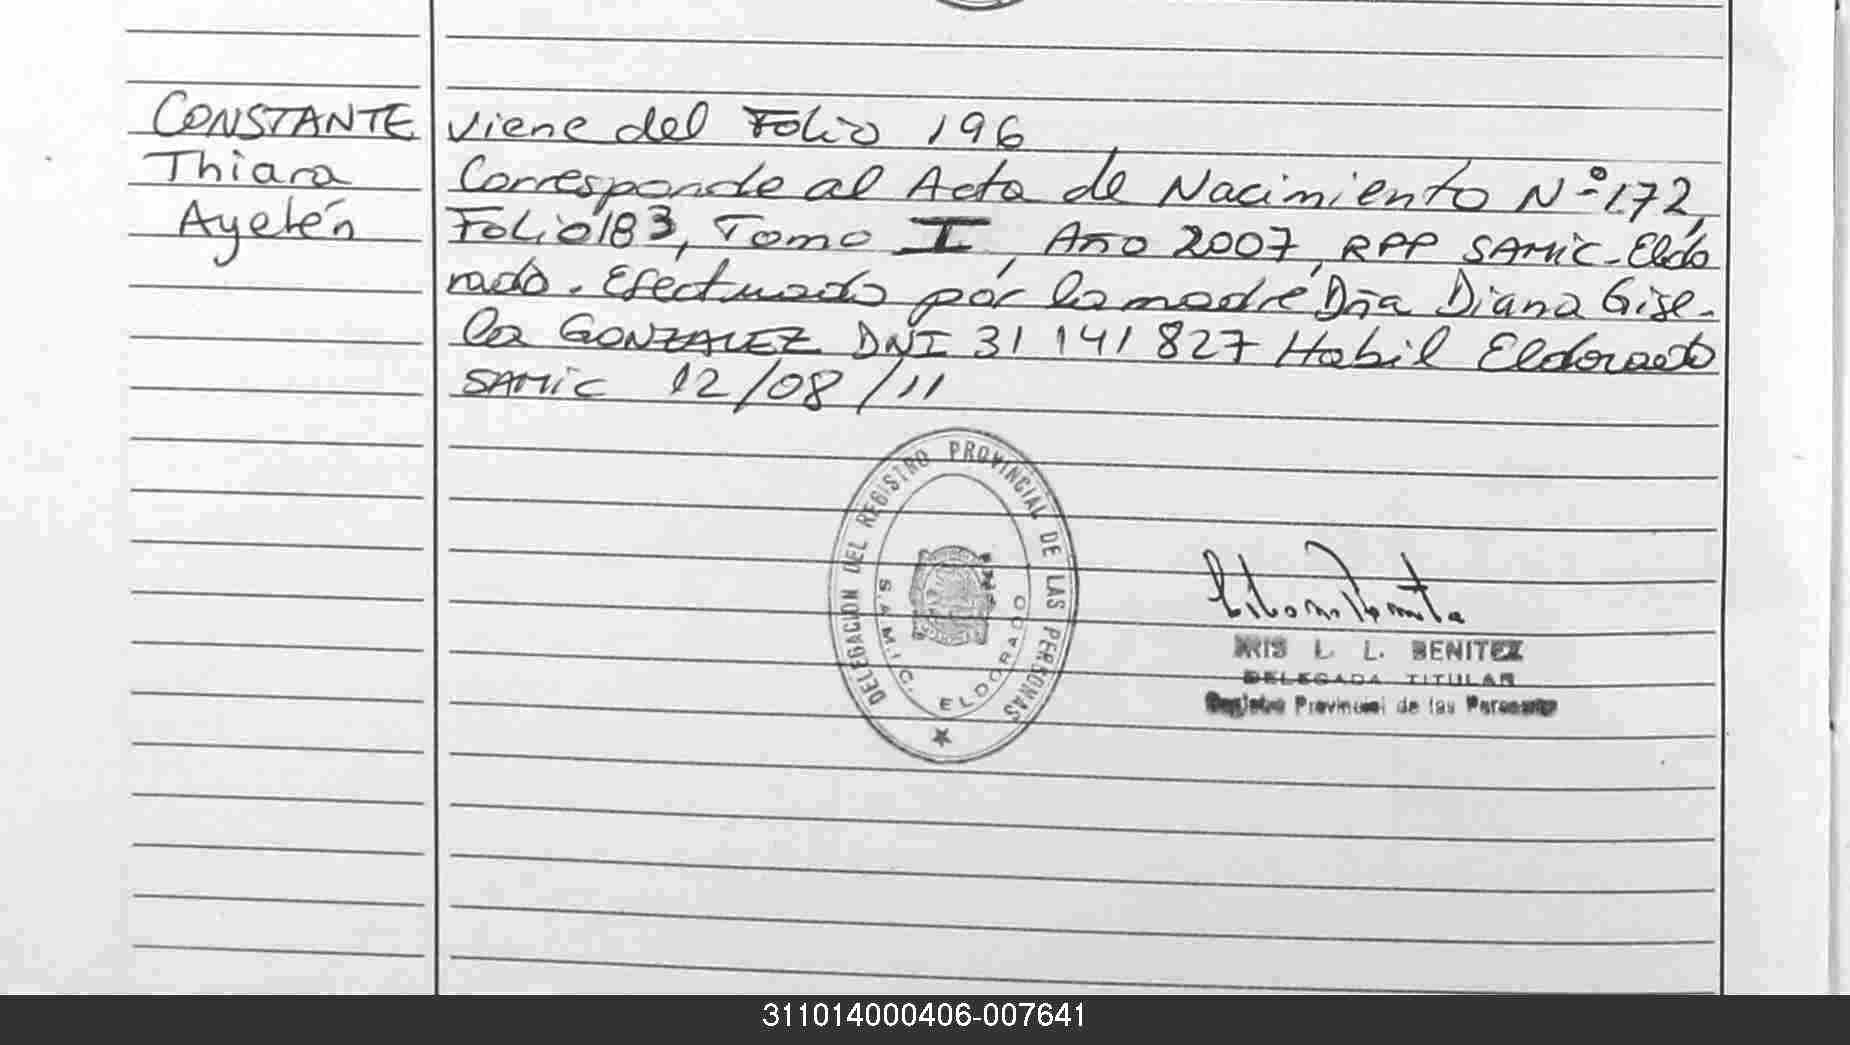 CONSTANTE
Thiara
Ayelén
viene del Folio 196
Corresponde al Acta de Nacimiento Nº 172,
Folio 183, Tomo I, Año 2007, RPP SAMIC - Eldo
rado. Efectuado por la madre Dña Diana Gise-
la GONZALEZ DNI 31 141 827 Habil Eldorado
SAMIC 12/08/11
DELEGACION DEL REGISTRO PROVINCIAL DE LAS PERSONAS
S.A.M.I.C. ELDORADO
IRIS L. L. BENITEZ
DELEGADA TITULAR
Registro Provincial de las Personas
311014000406-007641